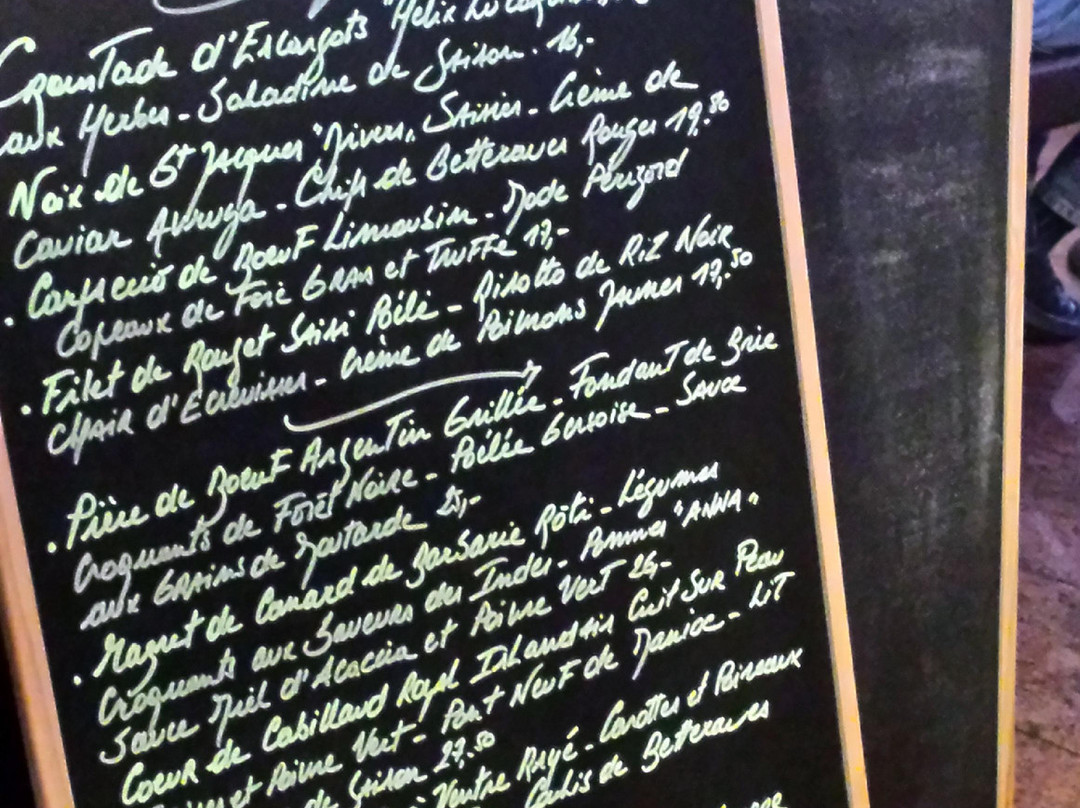 CroustADe d'Escargots "Helix
aux Herbes - Saladine de Saison. 16,-
Noix de St Jacques "Divers, Saisies - Crème de
Caviar Avruga - Chips de Betteraves Rouges 19,80
• Carpaccio de Boeuf Limousin - Mode Périgord
Copeaux de Foie GRAS et TRUFFE 17,-
• Filet de Rouget Saisi Poêlé - Risotto de RiZ NOIR
CHAIR d'Ecrevisses - Crème de Poivrons Jaunes 17,50
• Pièce de Boeuf Argentin Grillée - Fondant de Brie
Croquants de Forêt Noire - Poêlée Gersoise - SAUCE
aux GRAins de Moutarde 25,-
• Magret de Canard de Barbarie Rôti - Légumes
Croquants aux Saveurs des Indes - Pommes "ANNA"
Sauce Miel d'Acacia et Poivre Vert 26,-
Coeur de Cabillaud Royal Islandais Cuit SUR Peau
et Poivre Vert - Pont NeuF de Manioc - LiT
de Saison 27,50
Ventre Rayé - Carottes et Poireaux
Coulis de Betteraves